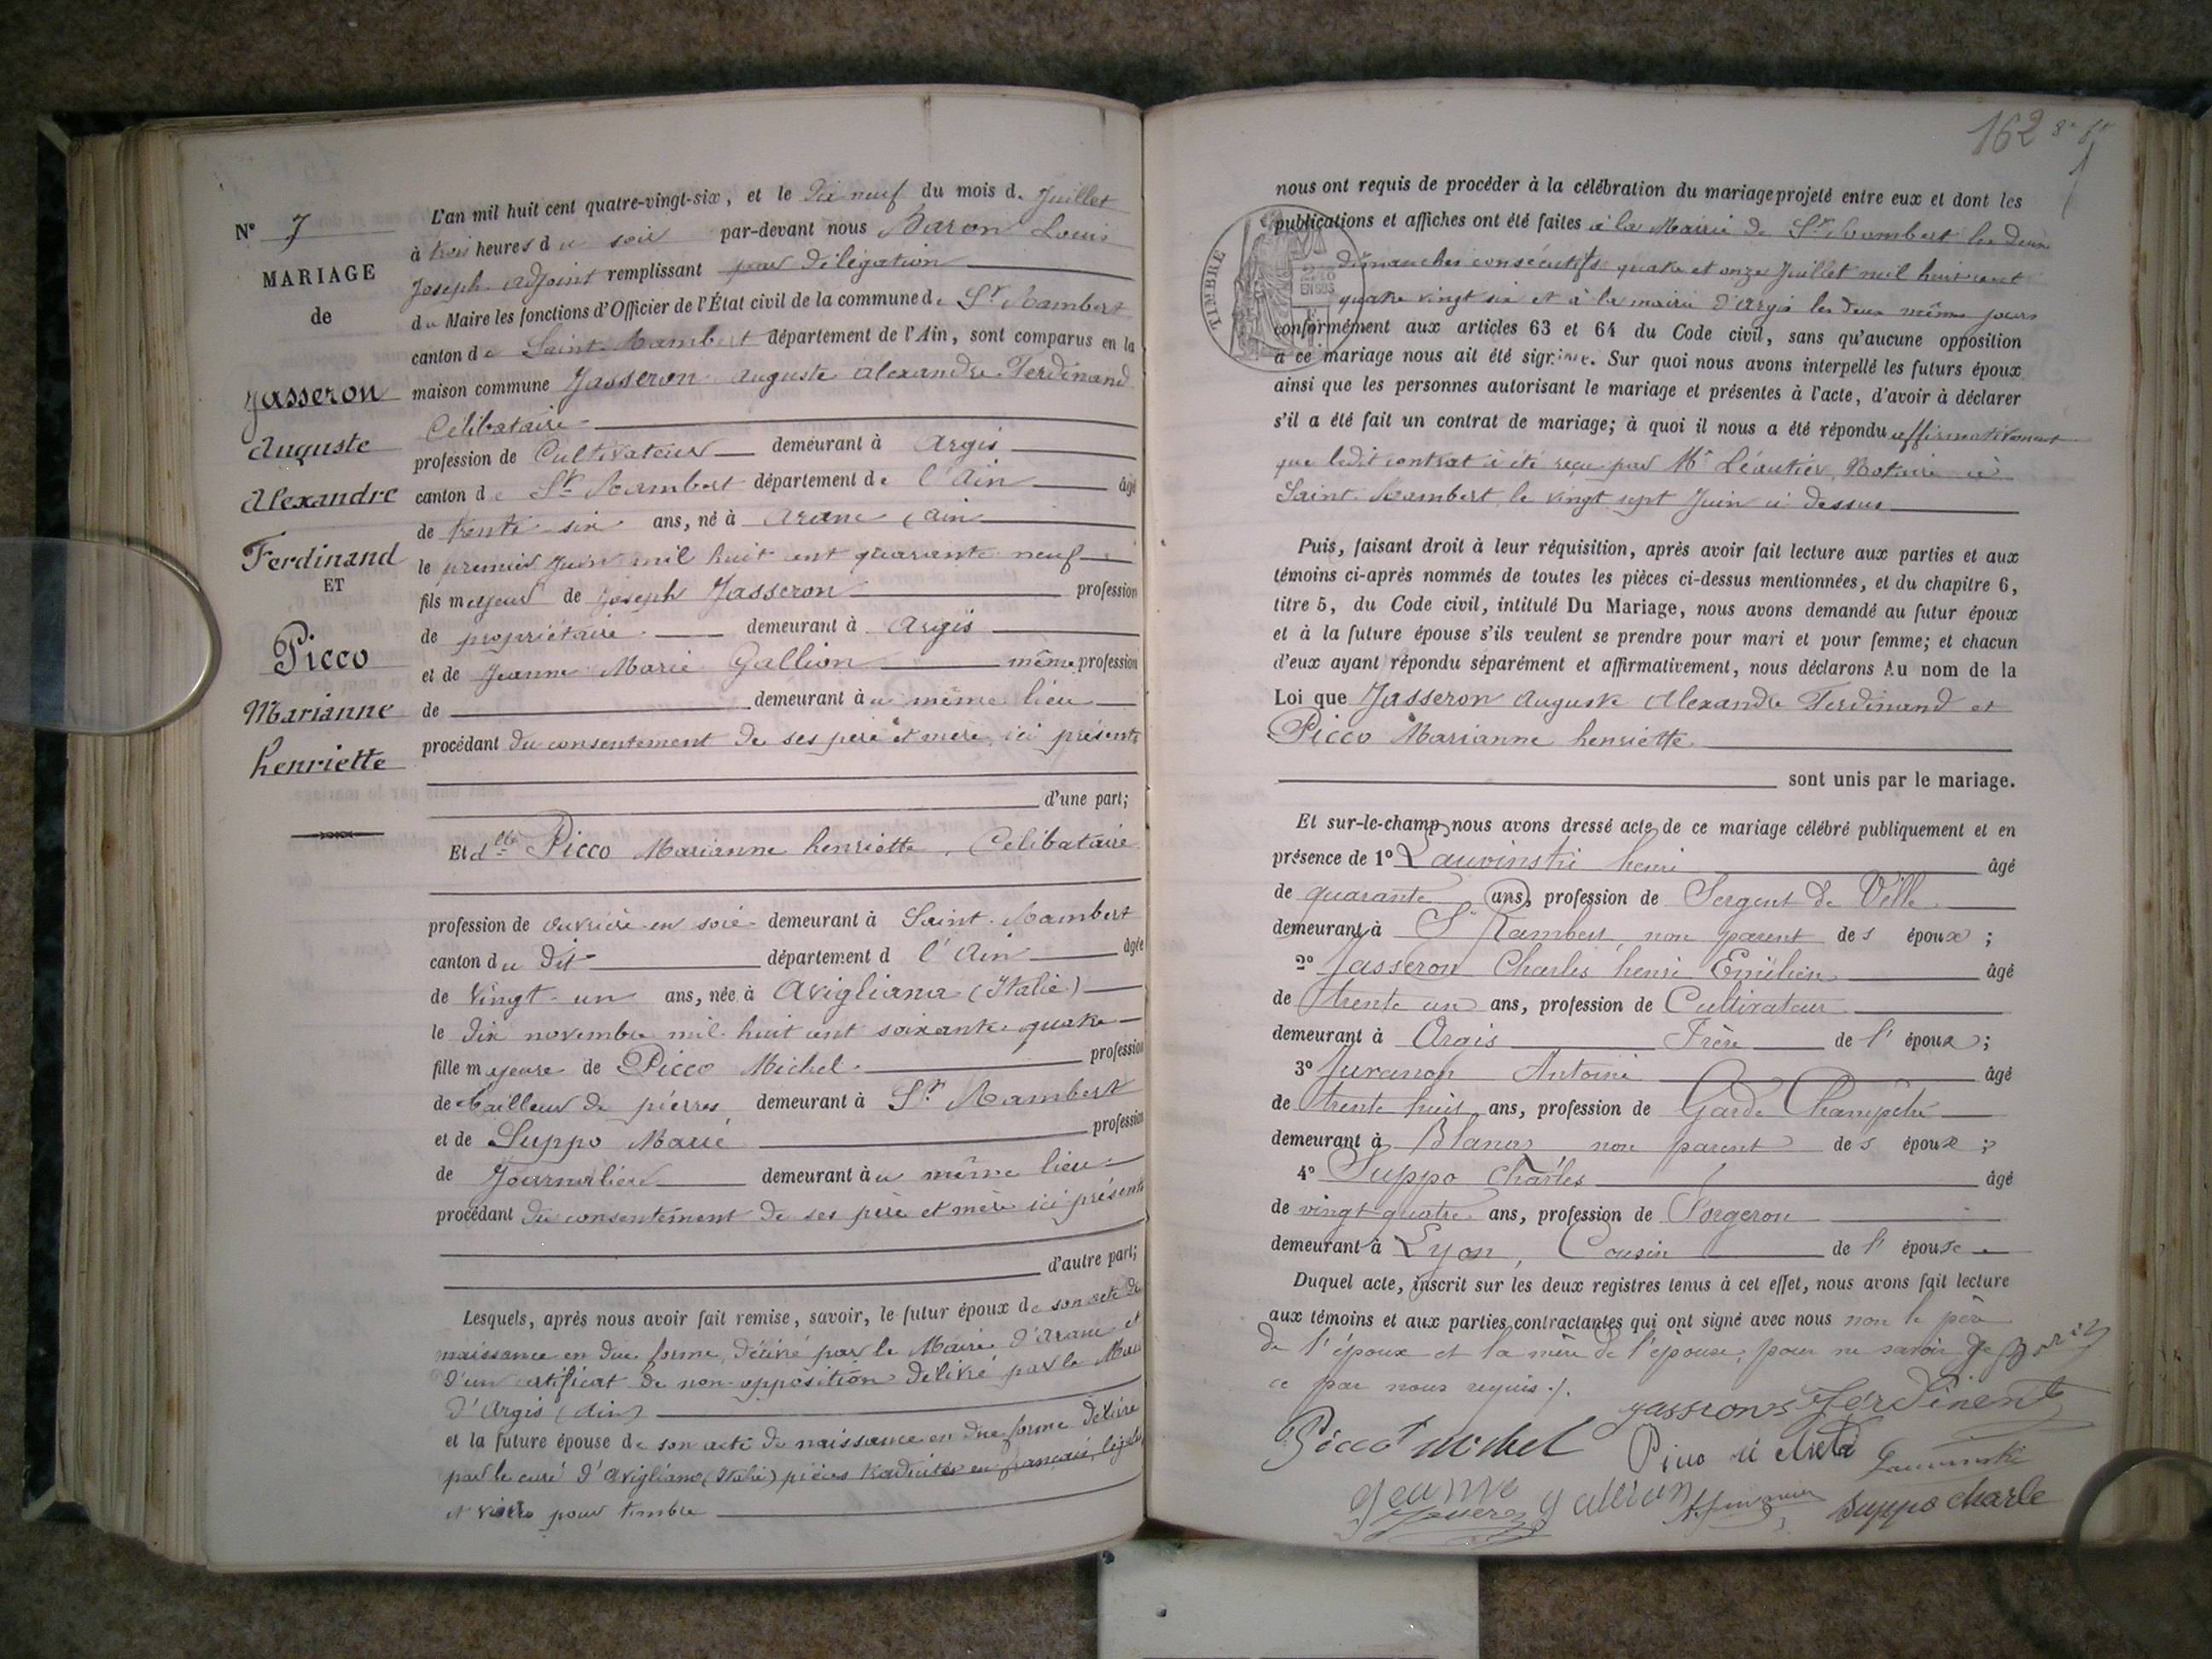 N° 7
MARIAGE
de
Jasseron
Auguste
Alexandre
Ferdinand
ET
Picco
Marianne
henriette
L'an mil huit cent quatre-vingt-six, et le Dix neuf du mois d. Juillet
à trois heures du soir par-devant nous Baron Louis
Joseph adjoint remplissant par délégation
du Maire les fonctions d'Officier de l'État civil de la commune de St Rambert
canton de Saint-Rambert département de l'Ain, sont comparus en la
maison commune Jasseron Auguste Alexandre Ferdinand
Célibataire
profession de Cultivateur demeurant à Argis
canton de St Rambert département de l'Ain âgé
de trente six ans, né à Aranc (ain
le premier Juin mil huit cent quarante neuf
fils majeur de Joseph Jasseron profession
de propriétaire demeurant à Argis
et de Jeanne Marie Gallion même profession
de demeurant au même lieu
procédant du consentement de ses père et mère ici présents
d'une part;
Et dlle Picco Marianne henriette, Célibataire
profession de ouvrière en soie demeurant à Saint-Rambert
canton du dit département d l'Ain âgée
de vingt-un ans, née à Avigliana (Italie)
le dix novembre mil huit cent soixante quatre
fille majeure de Picco Michel profession
de tailleur de pierres demeurant à St Rambert
et de Suppo Marie profession
de Journalière demeurant au même lieu
procédant du consentement de ses père et mère ici présents
d'autre part;
Lesquels, après nous avoir fait remise, savoir, le futur époux de son acte de
naissance en due forme, délivré par le Maire d'Aranc et
d'un certificat de non-opposition délivré par le Maire
d'Argis (Ain)
et la future épouse de son acte de naissance en due forme délivré
par le curé d'Avigliana (Italie) pièces traduites en français,
et visées pour timbre
162
TIMBRE
nous ont requis de procéder à la célébration du mariage projeté entre eux et dont les
publications et affiches ont été faites à la Mairie de St Rambert les deux
dimanches consécutifs quatre et onze Juillet mil huit cent
quatre vingt six et à la mairie d'Argis les deux mêmes jours
conformément aux articles 63 et 64 du Code civil, sans qu'aucune opposition
à ce mariage nous ait été signifiée. Sur quoi nous avons interpellé les futurs époux
ainsi que les personnes autorisant le mariage et présentes à l'acte, d'avoir à déclarer
s'il a été fait un contrat de mariage; à quoi il nous a été répondu affirmativement
que ledit contrat a été reçu par Me Léautier, Notaire à
Saint-Rambert le vingt sept Juin ci dessus
Puis, faisant droit à leur réquisition, après avoir fait lecture aux parties et aux
témoins ci-après nommés de toutes les pièces ci-dessus mentionnées, et du chapitre 6,
titre 5, du Code civil, intitulé Du Mariage, nous avons demandé au futur époux
et à la future épouse s'ils veulent se prendre pour mari et pour femme; et chacun
d'eux ayant répondu séparément et affirmativement, nous déclarons Au nom de la
Loi que Jasseron Auguste Alexandre Ferdinand et
Picco Marianne henriette
sont unis par le mariage.
Et sur-le-champ nous avons dressé acte de ce mariage célébré publiquement et en
présence de 1° Lauvinski henri âgé
de quarante ans, profession de Sergent de Ville
demeurant à St Rambert non parent des époux;
2° Jasseron Charles henri Emilien âgé
de trente un ans, profession de Cultivateur
demeurant à Argis Frère de l'époux;
3° Juranon Antoine âgé
de trente huit ans, profession de Garde Champêtre
demeurant à Blanas non parent des époux;
4° Suppo Charles âgé
de vingt-quatre ans, profession de Forgeron
demeurant à Lyon, Cousin de l'épouse
Duquel acte, inscrit sur les deux registres tenus à cet effet, nous avons fait lecture
aux témoins et aux parties contractantes qui ont signé avec nous non le père
de l'époux et la mère de l'épouse, pour ne savoir
ce par nous requis.
Jasseron Ferdinent
Picco Michel
Jeanne gallion
Suppo charle